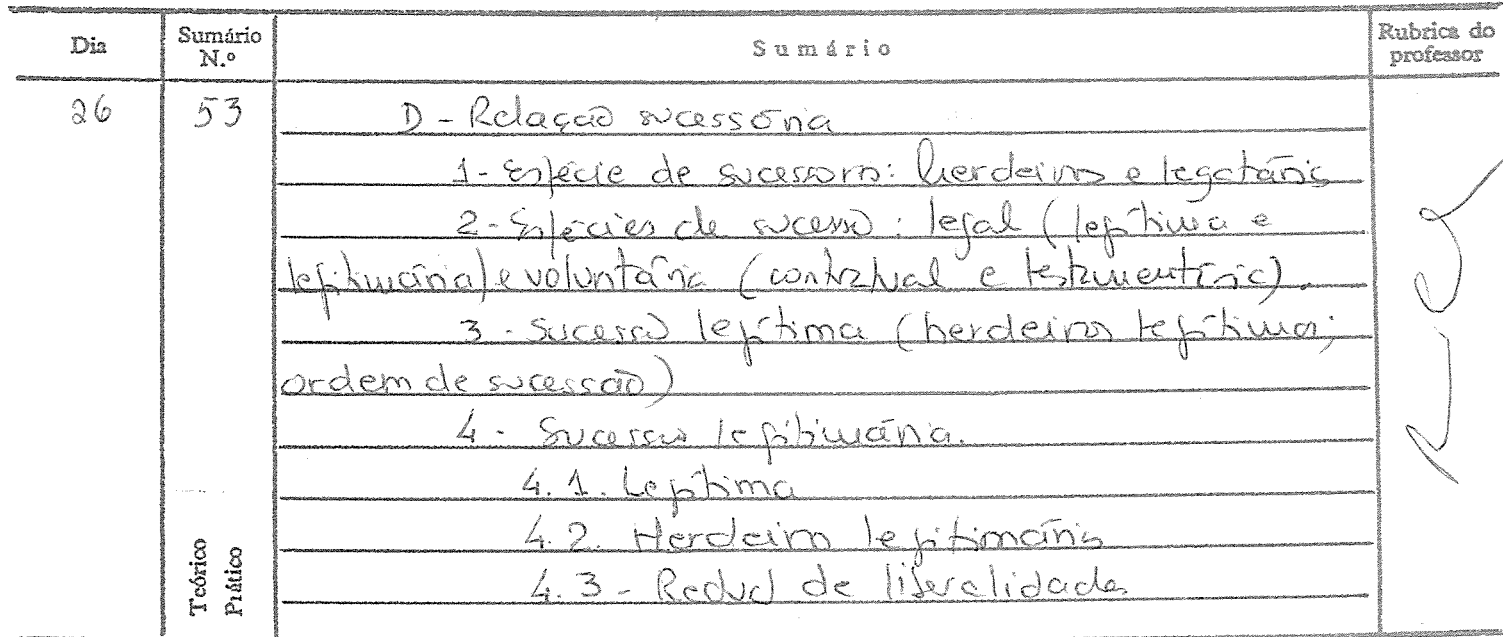 Dia Sumário N.º Sumário Rubrica do professor
26 53 D - Relação sucessória
1 - Espécie de sucessores: herdeiros e legatários
2 - Espécies de sucessão: legal (legítima e
legitimária) e voluntária (contratual e testamentária).
3 - Sucessão legítima (herdeiros legítimos;
ordem de sucessão)
4 - Sucessão legitimária.
4.1. Legítima
4.2. Herdeiros legitimários
4.3 - Redução de liberalidades
Teórico
Prático